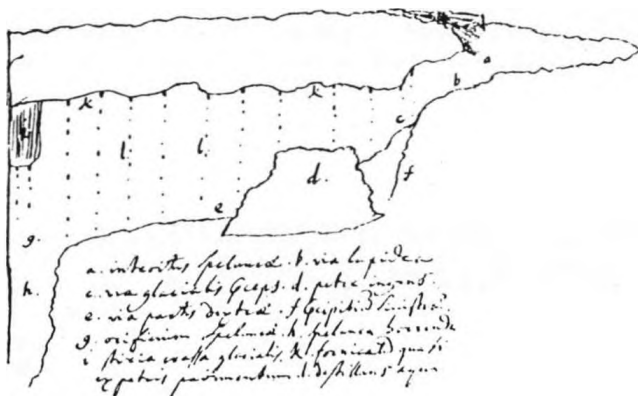 a
b
k k
i
c
l l.
d.
f
e
g.
h.
a. introitus speluncæ. b. via lapidea
c. via glacialis d. petra ingens.
e. via partis dextræ. f sinistræ
g. orificium speluncæ. h. spelunca horrenda
i stiria crassa glacialis. k. quasi
ex petris pavimentum. l. destillans aqua